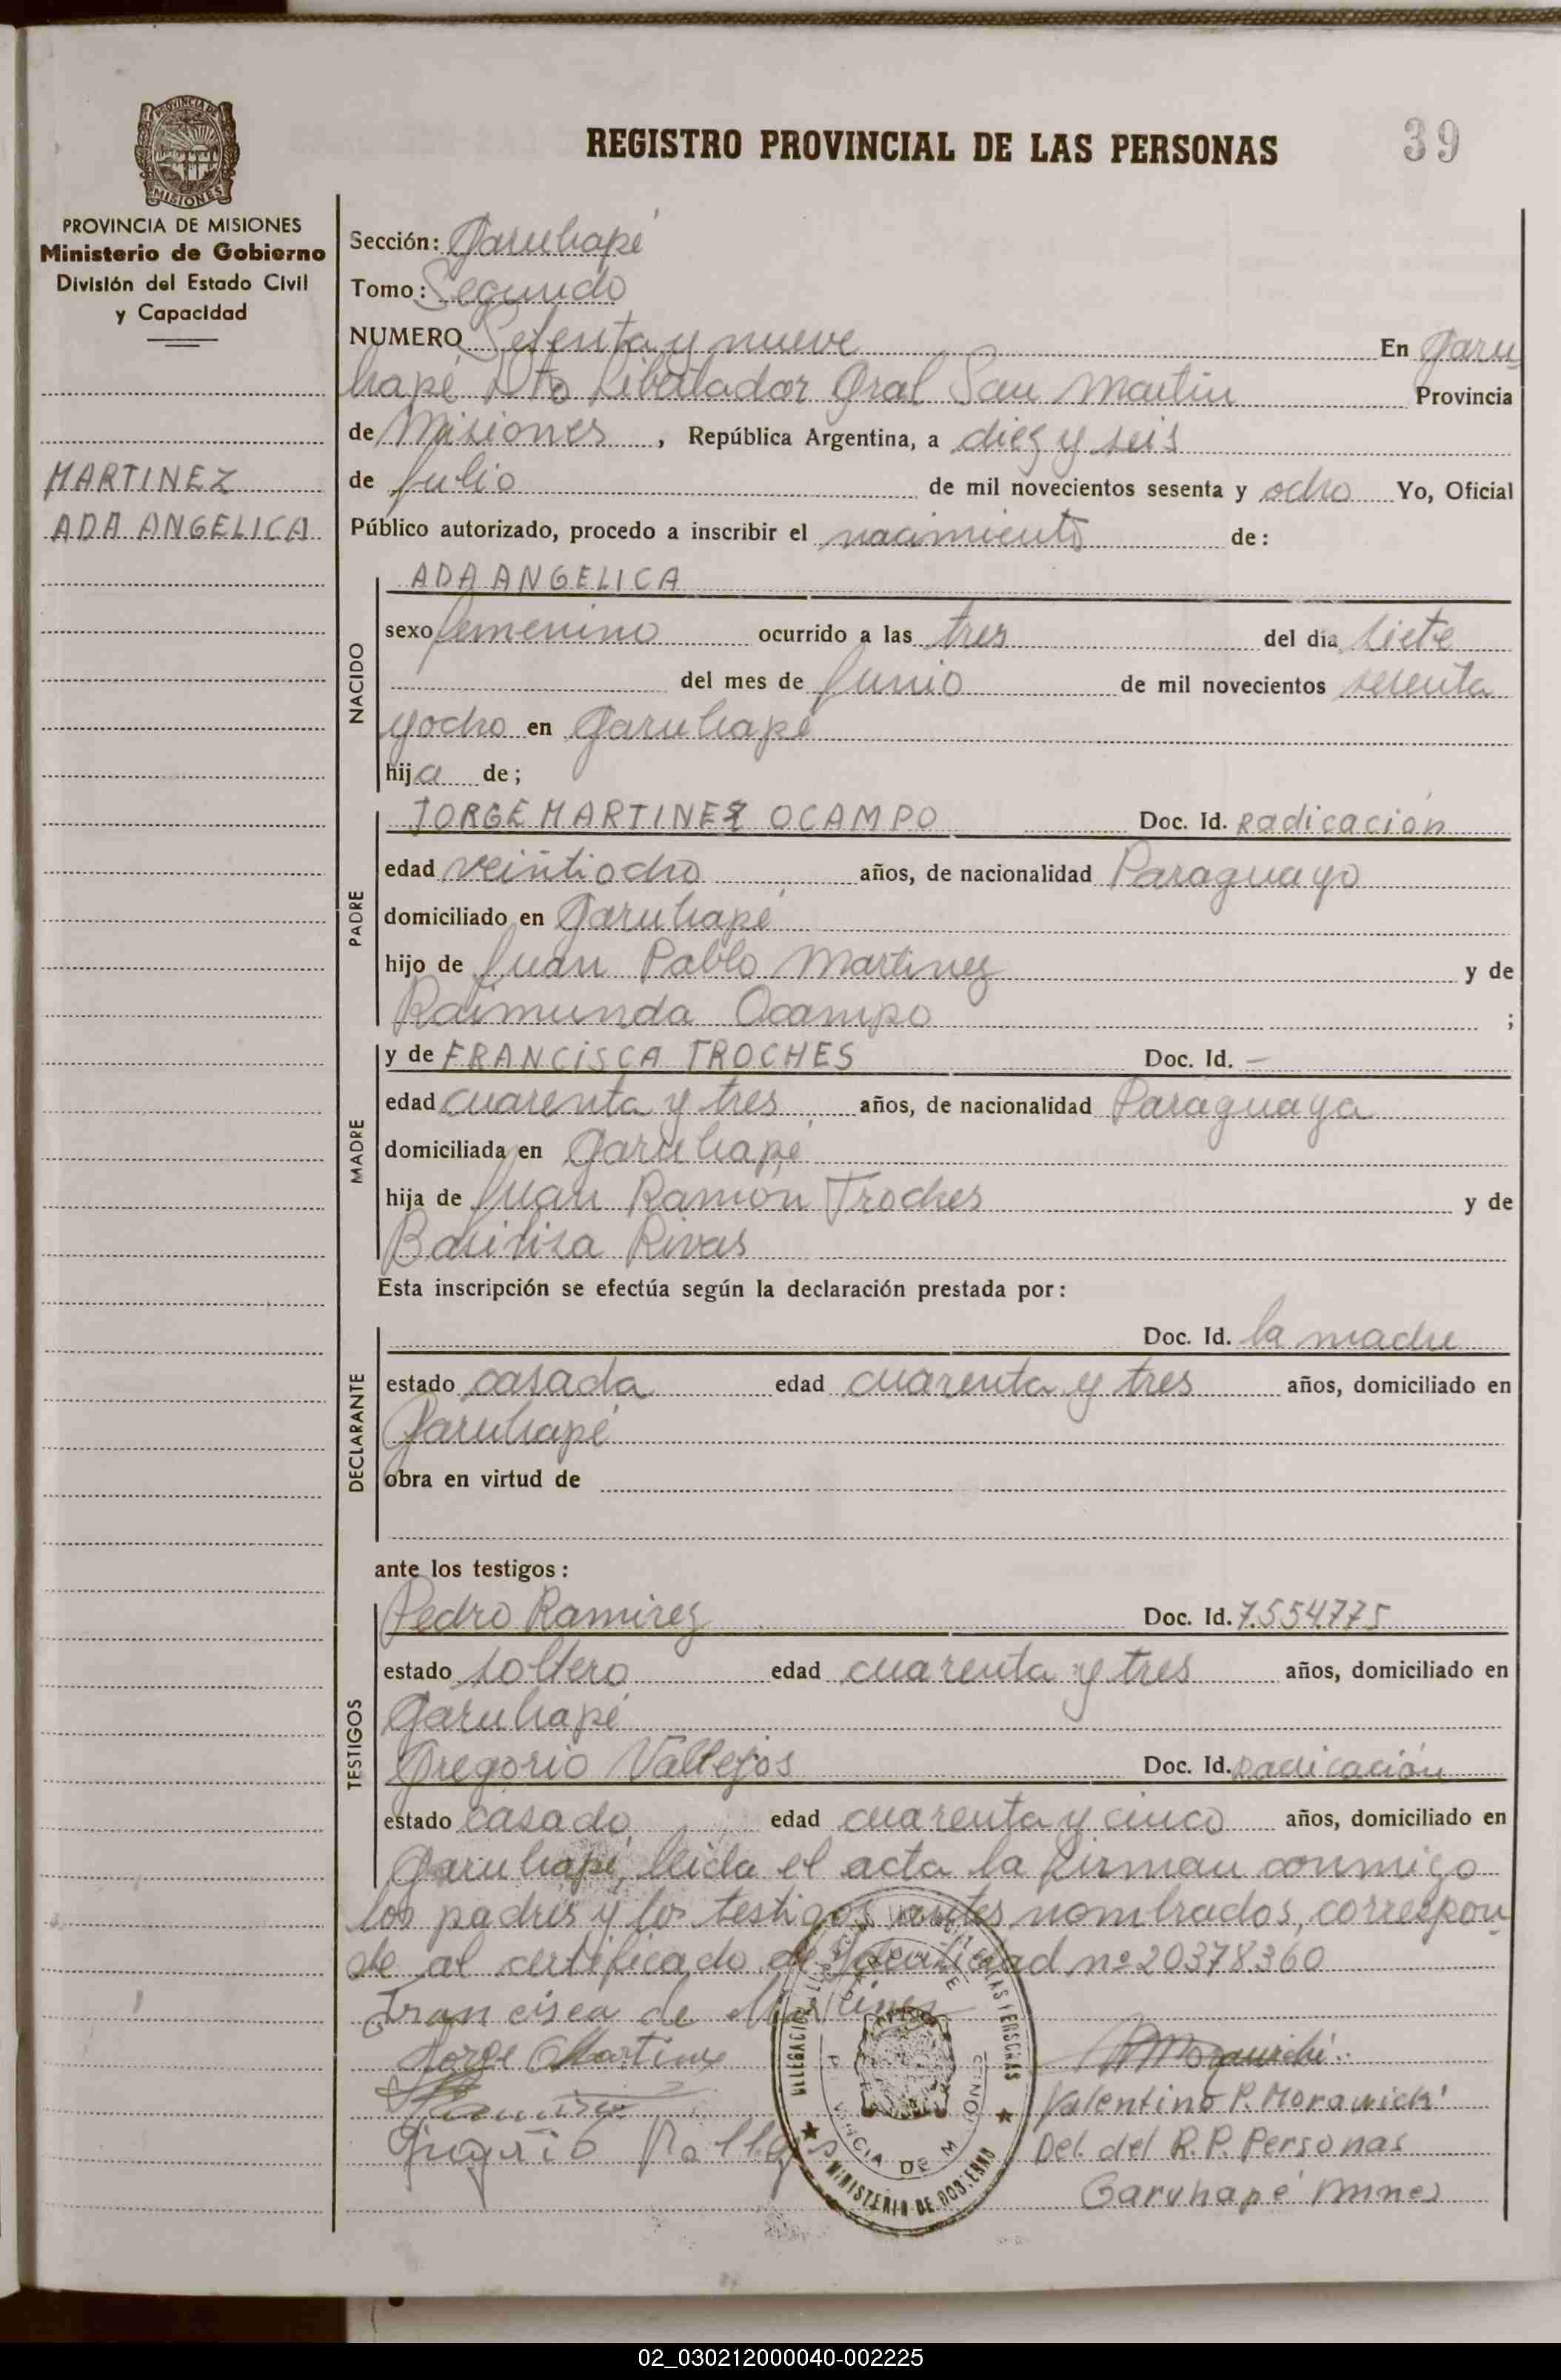 REGISTRO PROVINCIAL DE LAS PERSONAS
39
PROVINCIA DE MISIONES
PROVINCIA DE MISIONES
Ministerio de Gobierno
División del Estado Civil
y Capacidad
MARTINEZ
ADA ANGELICA
Sección: Garuhapé
Tomo: Segundo
NUMERO Setenta y nueve En Garu
hapé Dto Libertador Gral San Martin Provincia
de Misiones, República Argentina, a diez y seis
de Julio de mil novecientos sesenta y ocho Yo, Oficial
Público autorizado, procedo a inscribir el nacimiento de:
NACIDO
ADA ANGELICA
sexo femenino ocurrido a las tres del día siete
del mes de Junio de mil novecientos sesenta
y ocho en Garuhapé
hija de;
PADRE
JORGE MARTINEZ OCAMPO Doc. Id. Radicación
edad veintiocho años, de nacionalidad Paraguayo
domiciliado en Garuhapé
hijo de Juan Pablo Martinez y de
Raimunda Ocampo ;
MADRE
y de FRANCISCA TROCHES Doc. Id. —
edad cuarenta y tres años, de nacionalidad Paraguaya
domiciliada en Garuhapé
hija de Juan Ramón Troches y de
Basilisa Rivas
Esta inscripción se efectúa según la declaración prestada por:
DECLARANTE
Doc. Id. la madre
estado casada edad cuarenta y tres años, domiciliado en
Garuhapé
obra en virtud de
ante los testigos:
TESTIGOS
Pedro Ramirez Doc. Id. 7.554.775
estado soltero edad cuarenta y tres años, domiciliado en
Garuhapé
Gregorio Vallejos Doc. Id. radicación
estado casado edad cuarenta y cinco años, domiciliado en
Garuhapé, leida el acta la firman conmigo
los padres y los testigos antes nombrados, correspon
de al certificado de Identidad nº 20378.360
Francisca de Martinez
Jorge Martinez
Valentino P. Morawicki
Del. del R.P. Personas
Garuhapé Mnes
MINISTERIO DE GOBIERNO
02_030212000040-002225